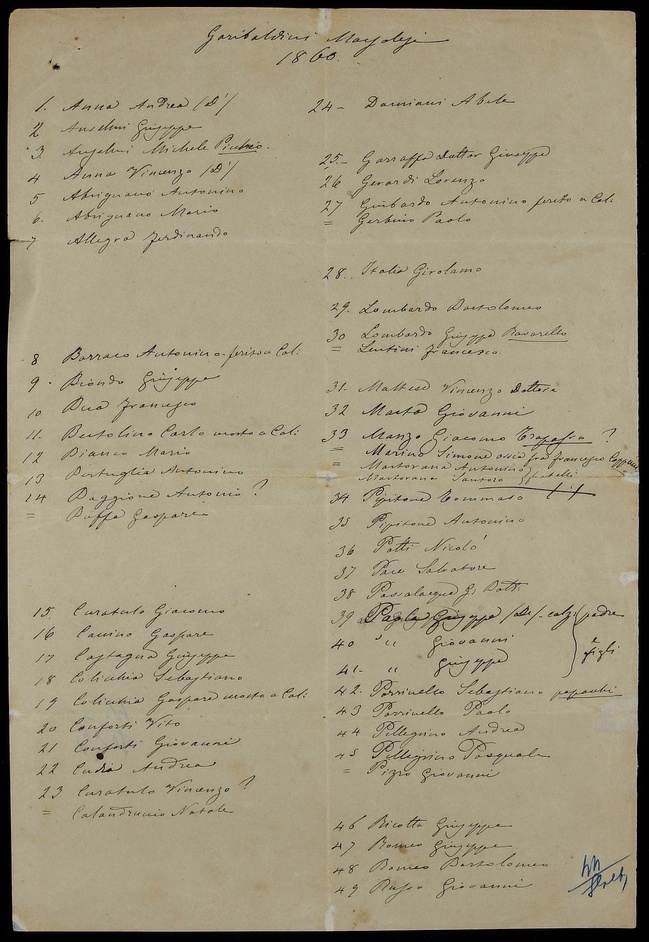 Garibaldini Marsalesi
1860.
1. Anna Andrea (D')
2 Anselmi Giuseppe
3. Angelini Michele
4 Anna Vincenzo (D')
5 Abrignano Antonino
6. Abrignano Mario
7 Allegra Ferdinando
8 Barraco Antonino ferito a Cal:
9. Biondo Giuseppe
10 Bua Francesco
11. Bertolino Carlo morto a Cal:
12 Bianco Mario
13 Bertuglia Antonino
14 Baggione Antonio ?
= Buffa Gaspare
15 Curatolo Giacomo
16 Gaspare
17 Castagna Giuseppe
18 Colicchia Sebastiano
19 Colicchia Gaspare morto a Cal:
20 Conforti Vito
21 Conforti Giovanni
22 Cudia Andrea
23 Curatolo Vincenzo ?
= Calandrino Natale
24 - Damiani Abele
25 - Garraffa Dottor Giuseppe
26 Gerardi Lorenzo
27 Giubardo Antonino ferito a Cal:
= Gerbino Paolo
28. Italia Girolamo
29. Lombardo Bartolomeo
30 Lombardo Giuseppe Ravarello
= Lentini Francesco
31. Maltese Vincenzo Dottore
32 Giovanni
33 Manzo Giacomo ?
= Marino Simone ossia fra Francesco
= Martorana Antonino
Martorana Santoro fratelli
34 Pipitone Tommaso
35 Pipitone Antonino
36 Patti Nicolò
37 Pace Salvatore
38 Passalacqua Gi Batt.
39 Paola Giuseppe (Di) padre
40 " " Giovanni e
41 - " Giuseppe figli
42. Parrinello Sebastiano
43 Parrinello Paolo
44 Pellegrino Andrea
45 Pellegrino Pasquale
= Pizzo Giovanni
46 Ricotta Giuseppe
47 Romeo Giuseppe
48 Romeo Bartolomeo
49 Russo Giovanni